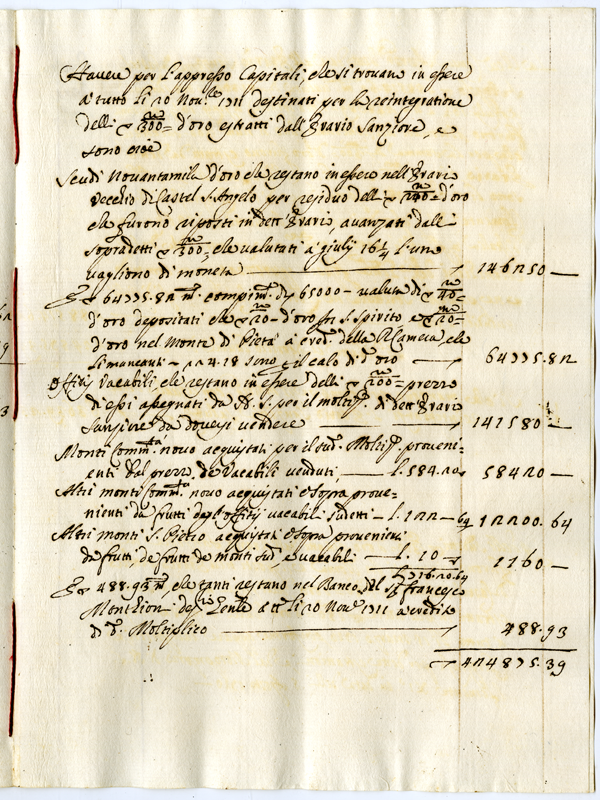 Havere per l'appresso Capitali, che si trovano in essere
a tutto li 20 Nov.re 1711 destinati per la reintegratione
delli 300 d'oro estratti dall'Erario Sanziore, e
sono cioè
Scudi Novantamila d'oro che restano in essere nell'Erario
vecchio di Castel S. Angelo per residuo delli d'oro
che furono riposti in dett'Erario, avanzati dalli
sopradetti 300 che valutati a giulij 16 1/4 l'uno
vagliono di moneta 146250
E 64775.82 m.ta compim.to di 65000 valuta di 40
d'oro depositati cioè 20 d'oro in S. Spirito e 20
d'oro nel Monte di Pietà a cred.o della R. Camera che
li mancanti 224.18 sono il calo di d.o oro 64775.82
Offitij Vacabili che restano in essere delli 200 prezzo
di essi assegnati da S. per il moltip.o di dett'Erario
Sanziore da doversi vendere 141580
Monti Comm.tà novo acquistati per il sud.o Moltip.o proveni-
enti dal prezzo de Vacabili venduti, l. 584.20 58420
Altri monti Comm.tà novo acquistati e sopra prove-
nienti da frutti degl'offitij vacabili sudetti l. 122 64 12200.64
Altri monti S. Pietro acquistati e sopra provenienti
da frutti, de frutti de monti sud.i e vacabili l. 10 1160
716.20.64
E 488.93 m.ta che tanti restano nel Banco del Sr. Francesco
Montioni li 20 Nov.e 1711 a credito
di d.o Moltiplico 488.93
424875.39